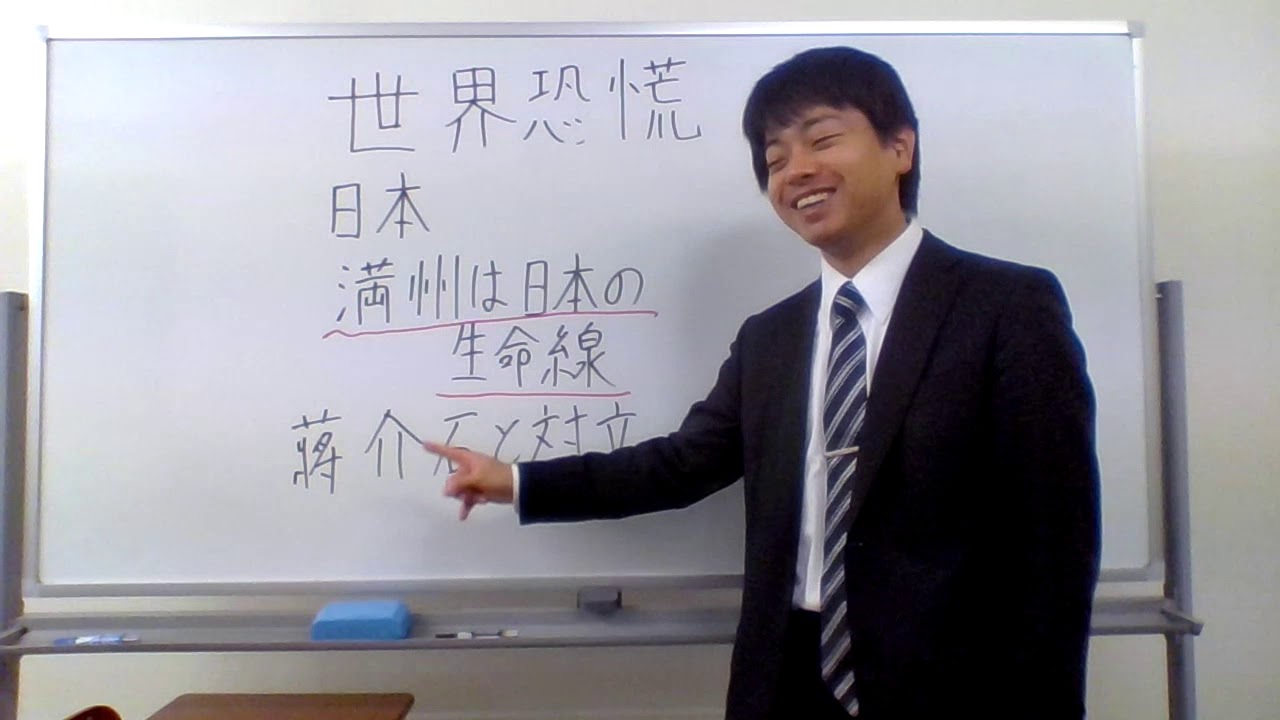 世界恐慌
日本
満州は日本の
生命線
蔣介石と対立